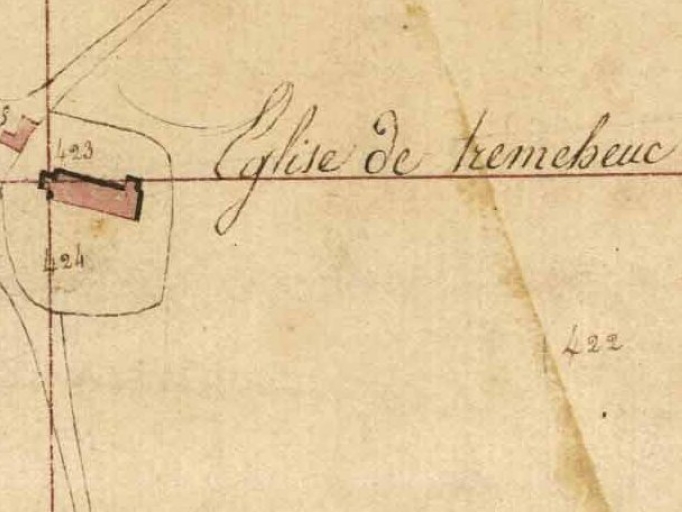 423
L'Eglise de tremeheuc
424
422